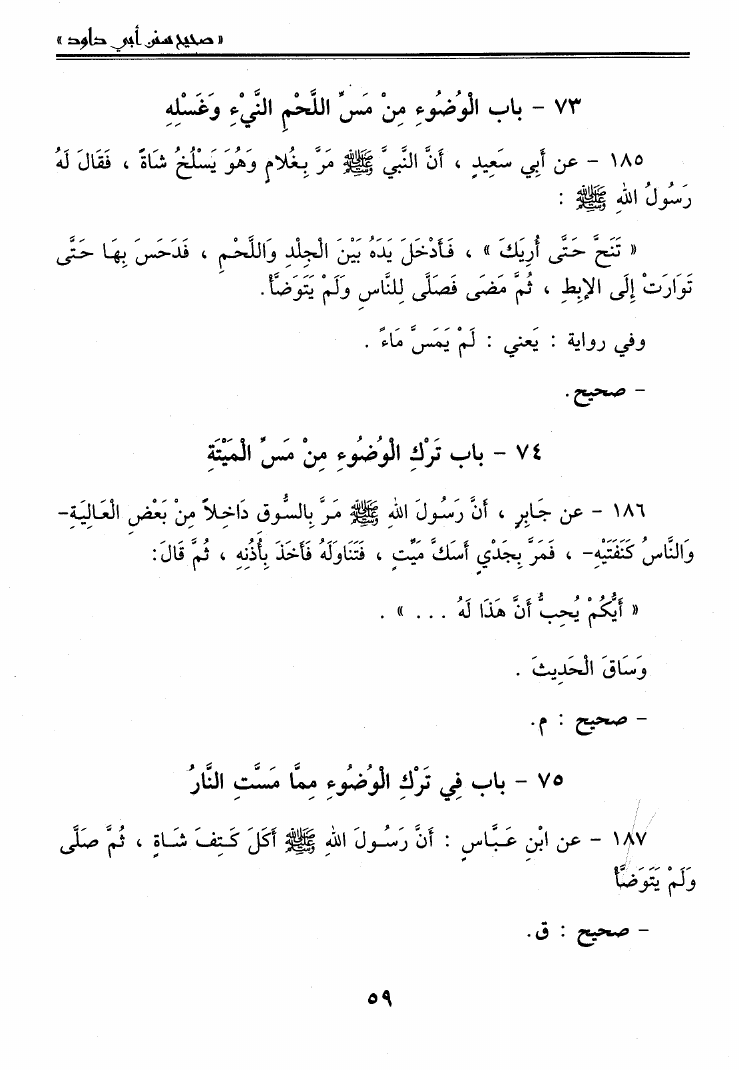 « صحيح سنن أبي داود »
٧٣ – باب الْوُضُوءِ مِنْ مَسِّ اللَّحْمِ النَّيْءِ وَغَسْلِهِ
١٨٥ – عن أَبِي سَعِيدٍ ، أَنَّ النَّبِيَّ ﷺ مَرَّ بِغُلَامٍ وَهُوَ يَسْلُخُ شَاةً ، فَقَالَ لَهُ
رَسُولُ اللهِ ﷺ :
« تَنَحَّ حَتَّى أُرِيَكَ » ، فَأَدْخَلَ يَدَهُ بَيْنَ الْجِلْدِ وَاللَّحْمِ ، فَدَحَسَ بِهَا حَتَّى
تَوَارَتْ إِلَى الإِبِطِ ، ثُمَّ مَضَى فَصَلَّى لِلنَّاسِ وَلَمْ يَتَوَضَّأْ.
وفي رواية : يَعني : لَمْ يَمَسَّ مَاءً .
– صحيح.
٧٤ – باب تَرْكِ الْوُضُوءِ مِنْ مَسِّ الْمَيْتَةِ
١٨٦ – عن جَابِرٍ ، أَنَّ رَسُولَ اللهِ ﷺ مَرَّ بِالسُّوقِ دَاخِلاً مِنْ بَعْضِ الْعَالِيَةِ–
وَالنَّاسُ كَنَفَتَيْهِ– ، فَمَرَّ بِجَدْيٍ أَسَكَّ مَيِّتٍ ، فَتَنَاوَلَهُ فَأَخَذَ بِأُذُنِهِ ، ثُمَّ قَالَ:
« أَيُّكُمْ يُحِبُّ أَنَّ هَذَا لَهُ ... » .
وَسَاقَ الْحَدِيثَ .
– صحيح : م.
٧٥ – باب فِي تَرْكِ الْوُضُوءِ مِمَّا مَسَّتِ النَّارُ
١٨٧ – عن ابْنِ عَبَّاسٍ : أَنَّ رَسُولَ اللهِ ﷺ أَكَلَ كَتِفَ شَاةٍ ، ثُمَّ صَلَّى
وَلَمْ يَتَوَضَّأْ
– صحيح : ق.
٥٩